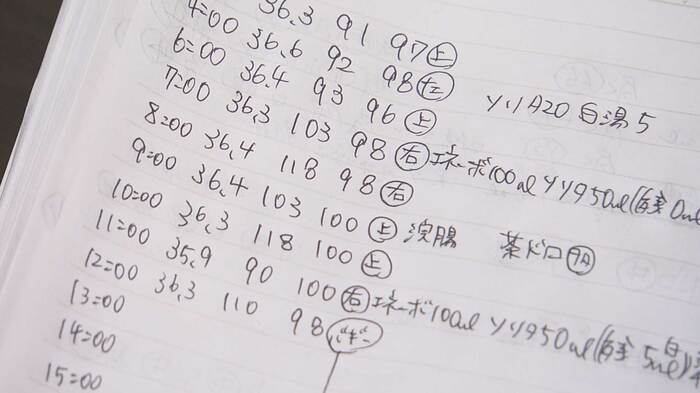 36.3 91 97 上
4:00 36.6 92 98 左 ソリA20 白湯5
6:00 36.4 93 96 上
7:00 36.3 103 98 右 エネーボ100ml ソリタ50ml(残0ml
8:00 36.4 118 98 右
9:00 36.4 103 100 上 浣腸 茶ドロ中
10:00 36.3 118 100 上
11:00 35.9 90 100 右 エネーボ100ml ソリタ50ml(残5ml
12:00 36.3 110 98 バギー
13:00
14:00
15:00